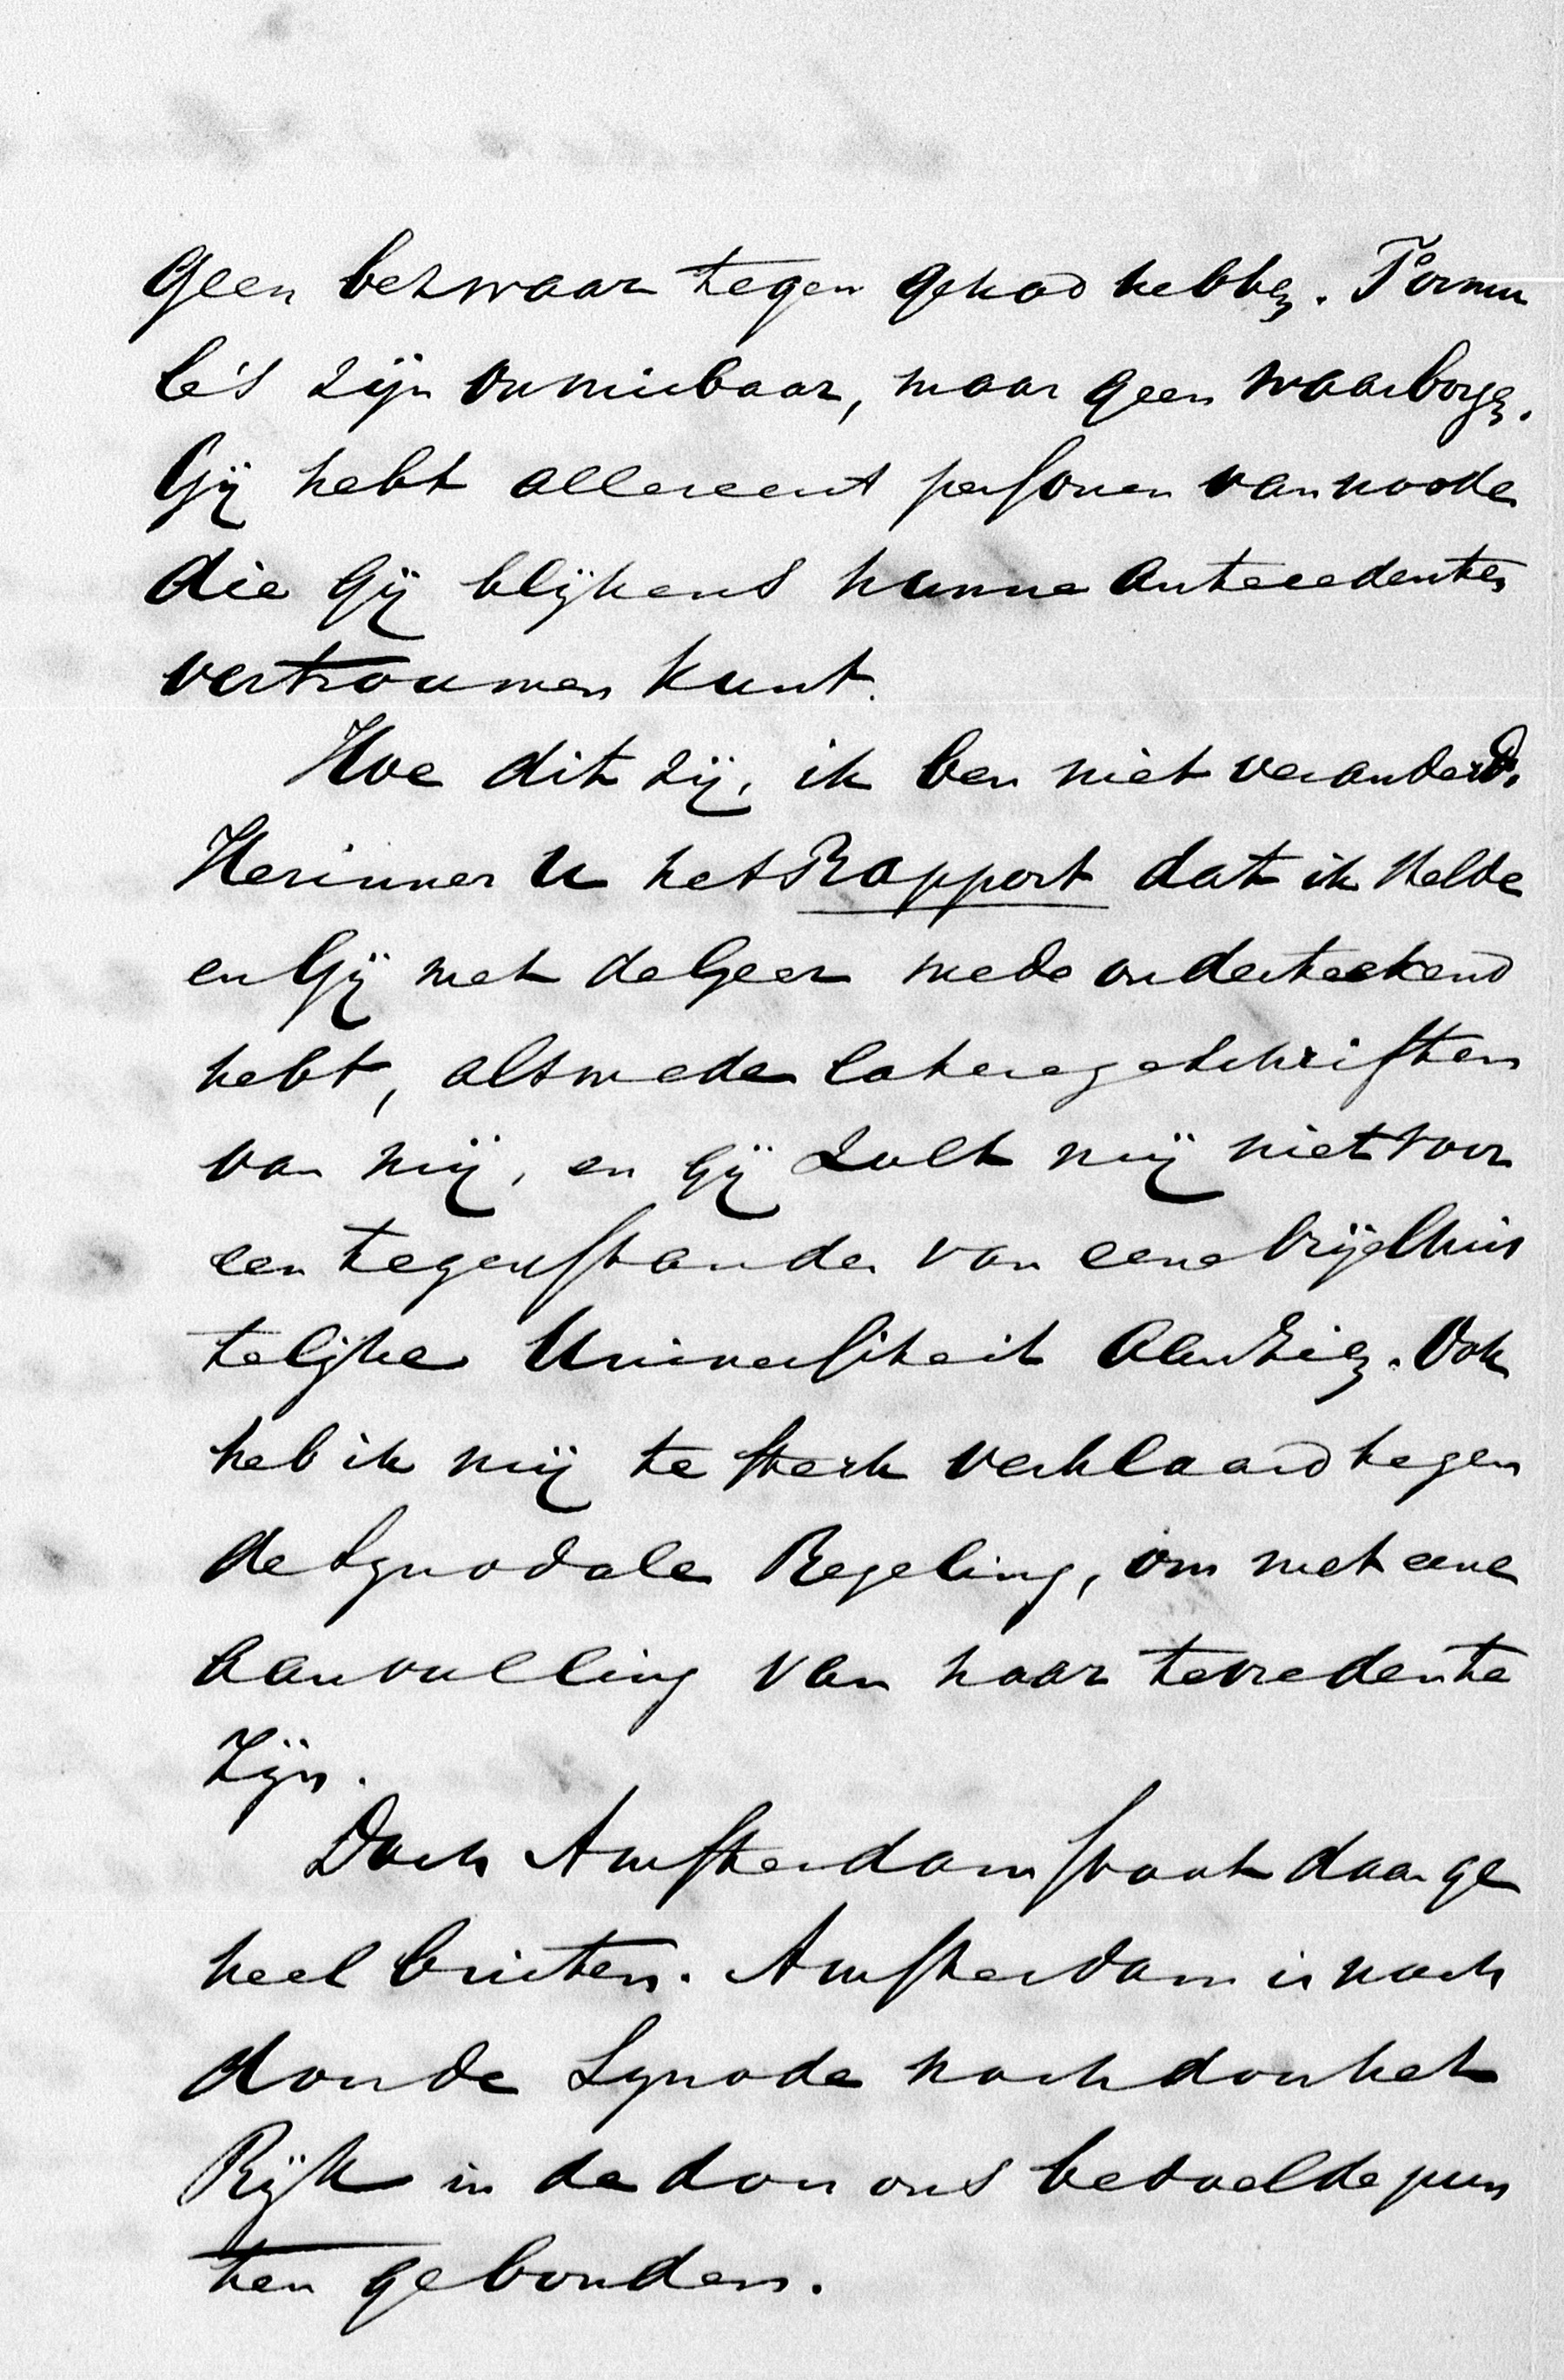 geen bezwaar tegen gehad hebben. Formu
le's zijn onmisbaar, maar geen waarborgen.
Gij hebt allereerst personen van noode
die Gij blijkens hunne antecedenten
vertrouwen kunt.
Hoe dit zij, ik ben niet veranderd.
Herinner U het Rapport dat ik stelde
en Gij met de Geer mede onderteekend
hebt, alsmede latere geschriften
van mij, en Gij zult mij niet voor
een tegenstander van eene vrije Chris
telijke Universiteit aanzien. Ook
heb ik mij te sterk verklaard tegen
de Synodale Regeling, om met eene
aanvulling van haar tevreden te
zijn.
Doch Amsterdam staat daar ge
heel buiten. Amsterdam is noch
door de Synode noch door het
Rijk in de door ons bedoelde pun
ten gebonden.